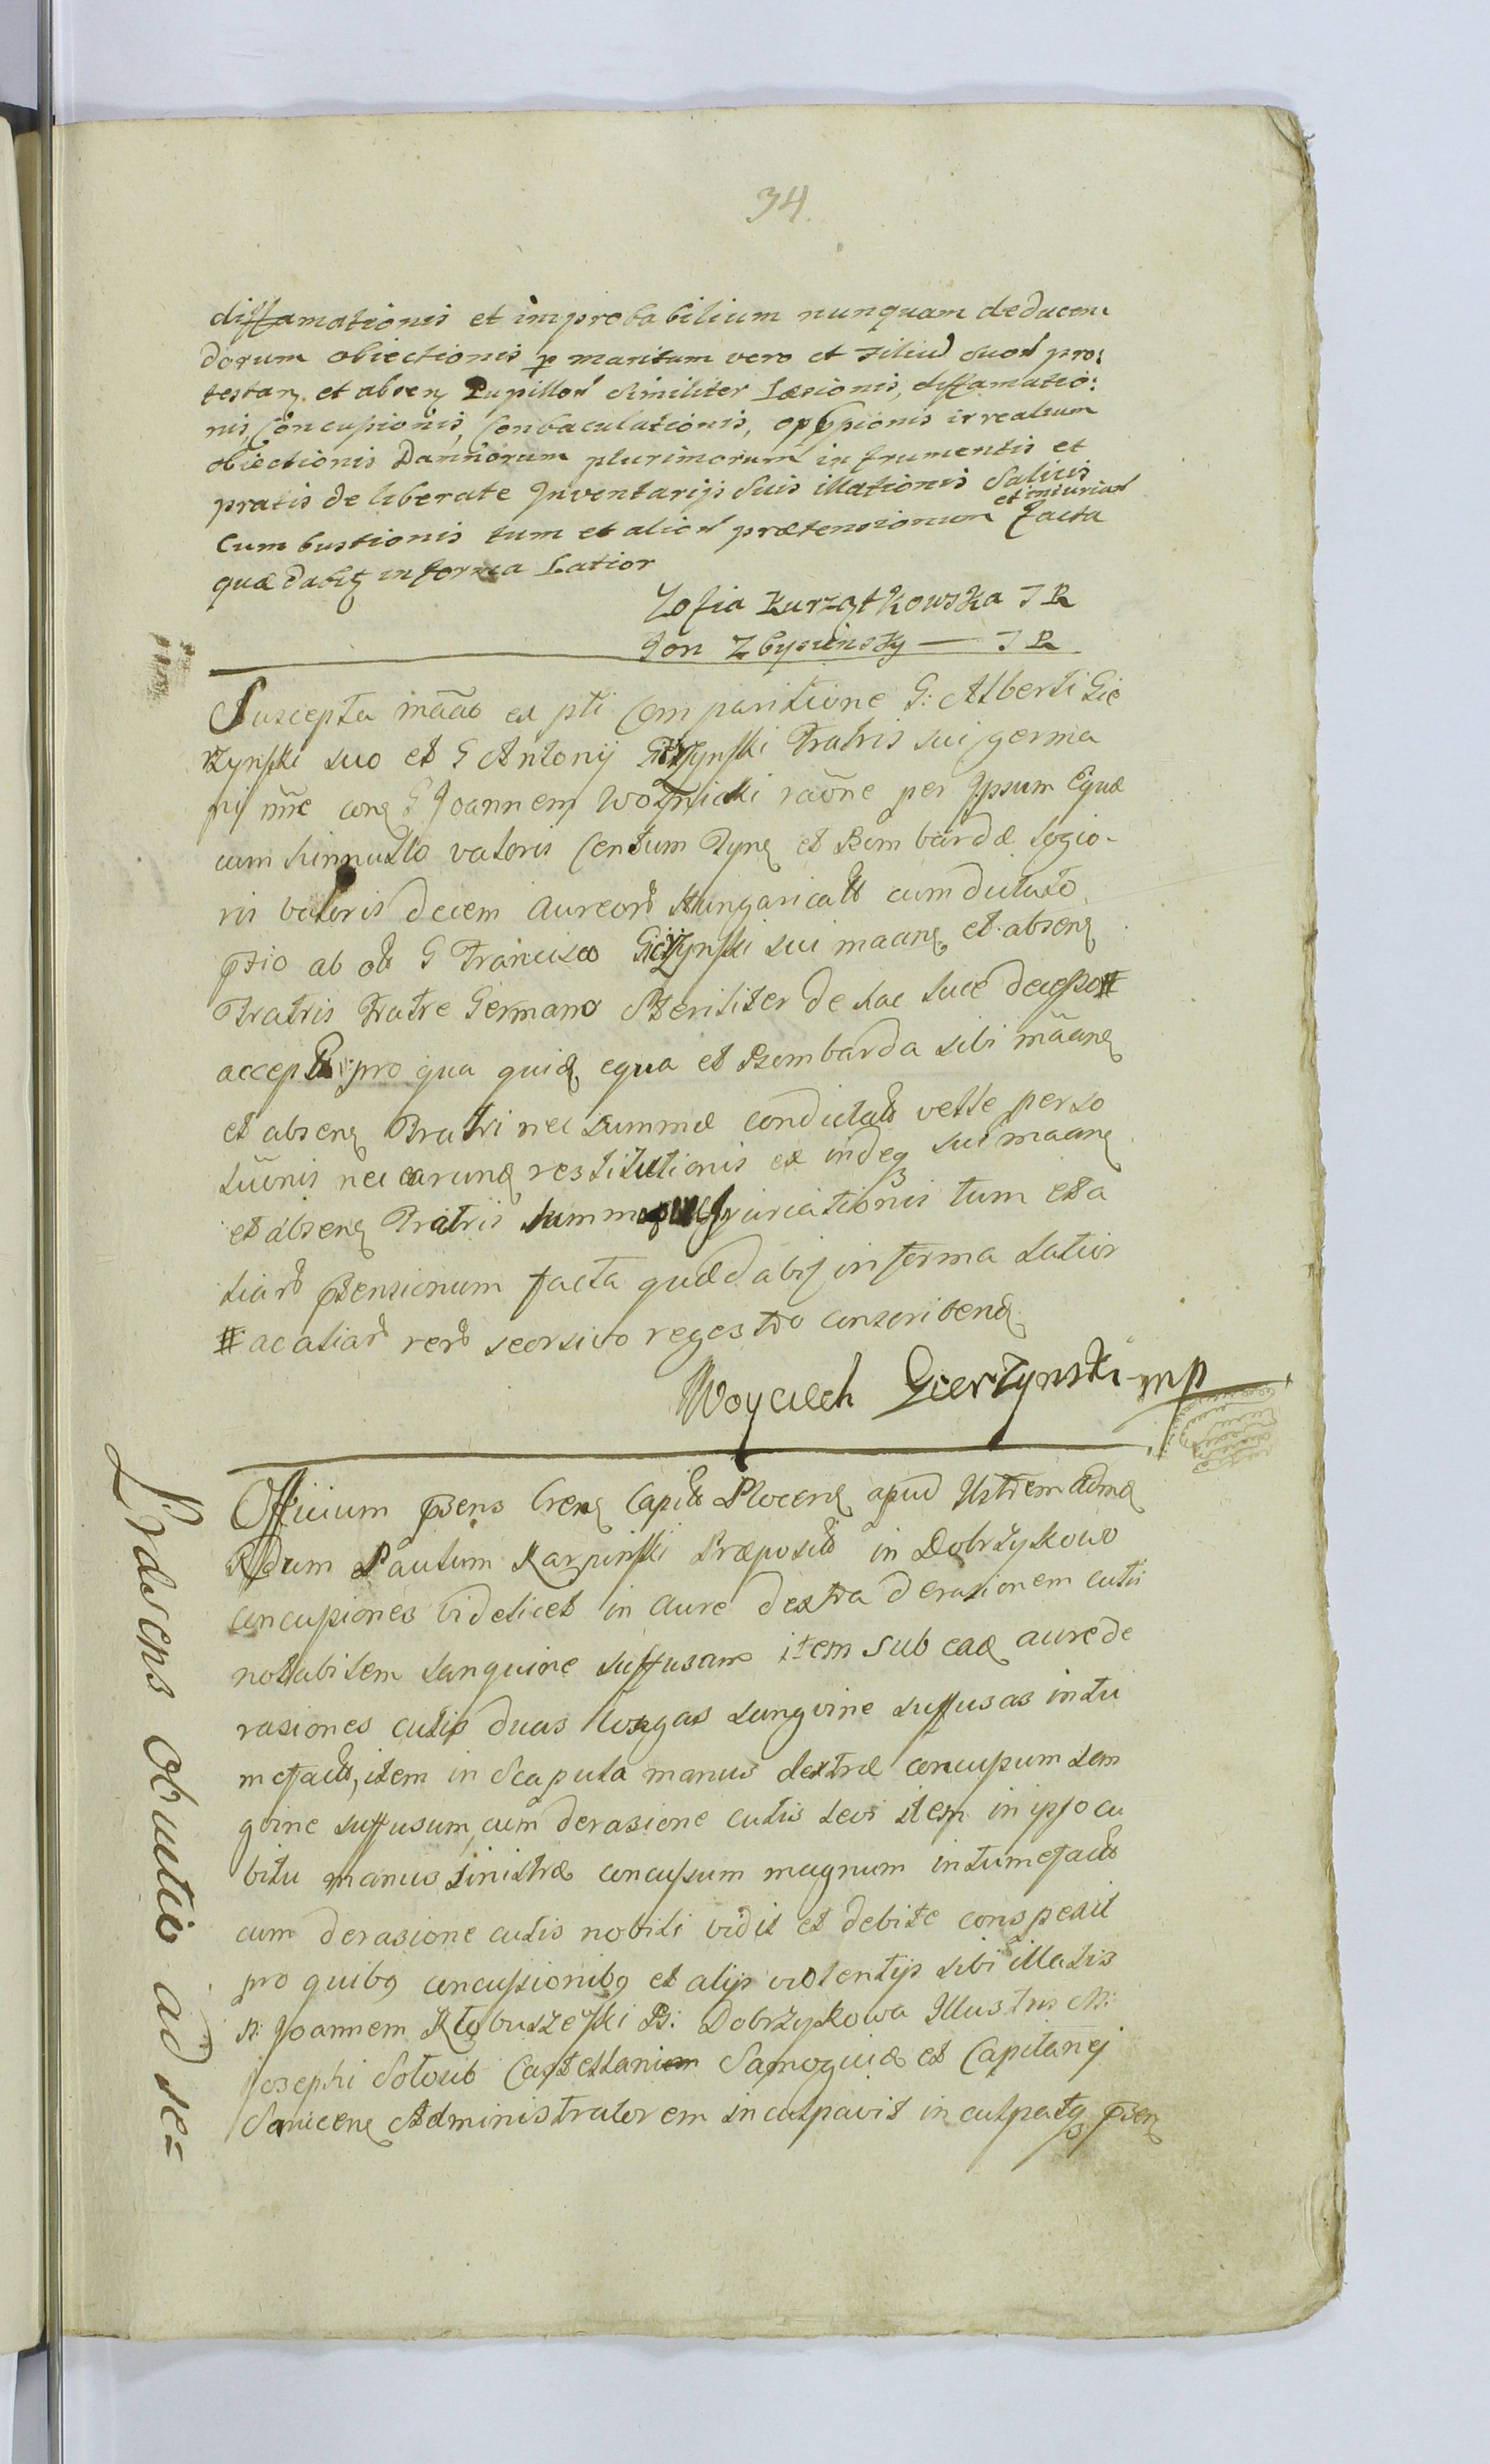 34.
diffamationis et improbabilium nunquam deducen
dorum obiectionis p maritum vero et filiu suor pro:
testan et absen Pupillor similiter Læsionis, diffamatio:
nis, Concussionis, Conbaculationis, oppssionis irrealium
obiectionis Damnorum plurimorum in frumentis et
pratis deliberate Inventarijs suis illationis Salicis
et iniuriar
Cumbustionis tum et alior prætensionum facta
quæ dabit in forma Latior
Zofia Kurzątkowska
Jon Zbysinsky
Suscepta mãao ex pti Comparitione G: Alberti Gie
rzynski suo et G Antonij Gierzynski Fratris sui germa
ni nne con G Joannem Woznicki raõne per Ipsum Equæ
cum hinnullo valoris Centum Tynf et Bombardæ logio-
ris valoris decem Aureor Hungarical cum dictato
ptio ab ol G Francisco Gierzynski sui maan et absen
Fratris Fratre Germano Steriliter de hac luce decesso #
accept pro qua quid equa et Bombarda sibi mãan
et absen Fratri nec summæ condictat velle perso
lũonis nec earund restitutionis ex indeq sui maan
et absen Fratris summ iurciationis tum et a
liar ptensionum facta quæ dabit in forma latior
# ac aliar rer seorsivo regestro conscriben
Woyciech Gierzynski mp
Officium psens Cren Capit Plocen apud Ustrem Adm
Rdum Paulum Karpinski Præposit in Dobrzykowo
concussiones videlicet in aure dextra derasionem cutis
notabilem sanguine suffusam item sub ead aure de
rasiones cutis duas longas sanguine suffusas intu
mefact, item in scapula manus dextræ concussum san
guine suffusum, cum derasione cutis levi item in ipso cu
bitu manus sinistræ concussum magnum intumefact
cum derasione cutis nobili vidit et debite conspexit
pro quibq concussionibq et alijs violentijs sibi illatis
N: Joannem Kłobuszewski B: Dobrzykowa Illustris M:
Josephi Sołoub Castellani Samogitiæ et Capitanej
Sanicen Administratorem inculpavit inculpatq psen
Prdcns obductio ad se=